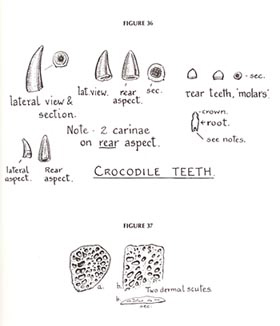 FIGURE 36
lateral view &
section.
lat. view.
rear
aspect.
sec.
rear teeth, 'molars'.
sec.
crown.
root.
see notes.
Note - 2 carinae
on rear aspect.
lateral
aspect.
Rear
aspect.
CROCODILE TEETH.
FIGURE 37
a.
b.
Two dermal scutes
b.
sec.